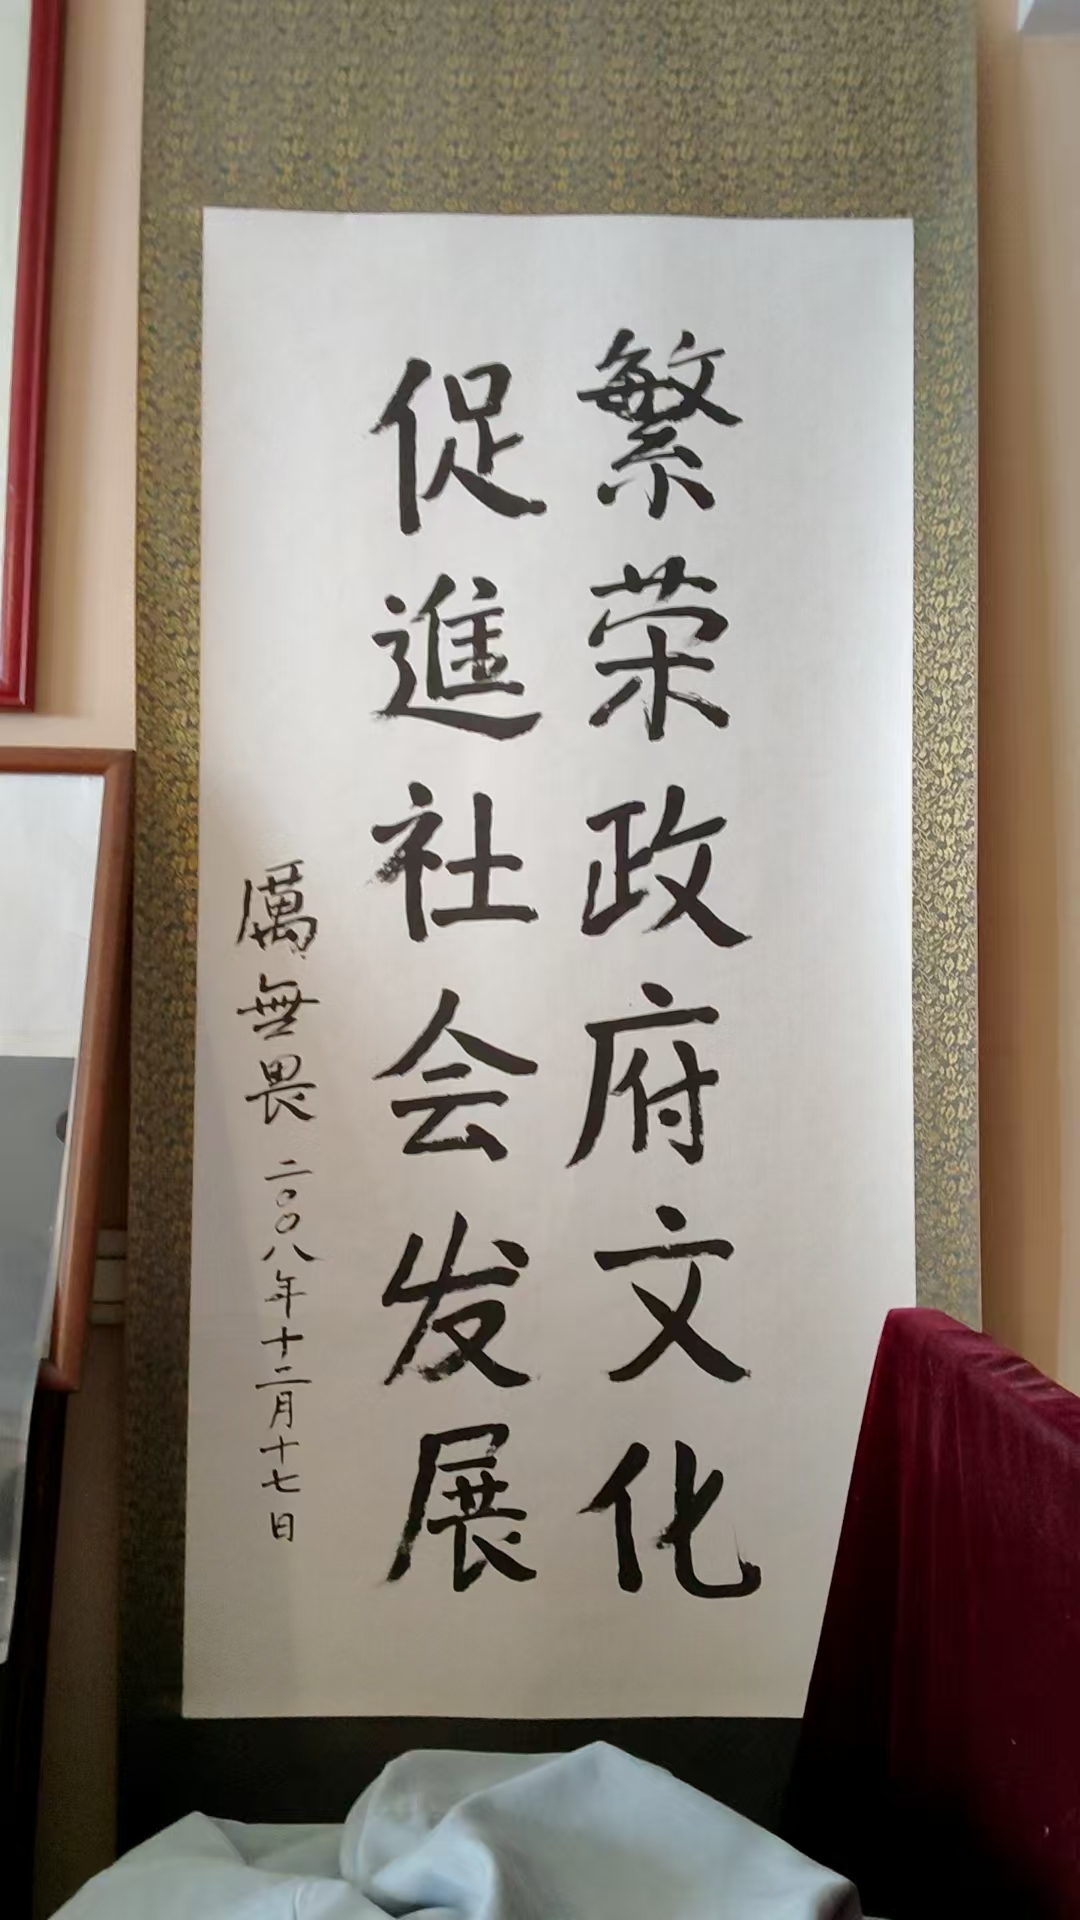 繁荣政府文化
促進社会发展
厲無畏 二〇〇八年十二月十七日